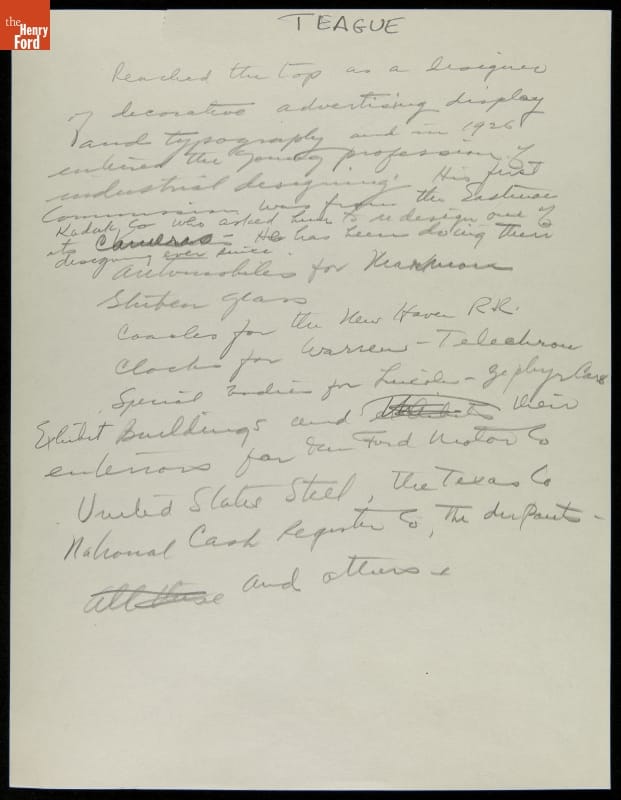 the
Henry
Ford
TEAGUE
Reached the top as a designer
of decorative advertising display
and typography and in 1926
entered the young profession of
industrial designing. His first
Commission was from the Eastman
Kodak Co who asked him to redesign one of
its Cameras - He has been doing their
designing ever since.
Automobiles for Marmon
Stuben glass
Coaches for the New Haven R.R.
Clocks for Warren - Telechron
Special bodies for Lincoln - Zephyr Cars
Exhibit Buildings and exhibits their
interiors for the Ford Motor Co
United States Steel, the Texas Co
National Cash Register Co, The du Ponts -
All these and others